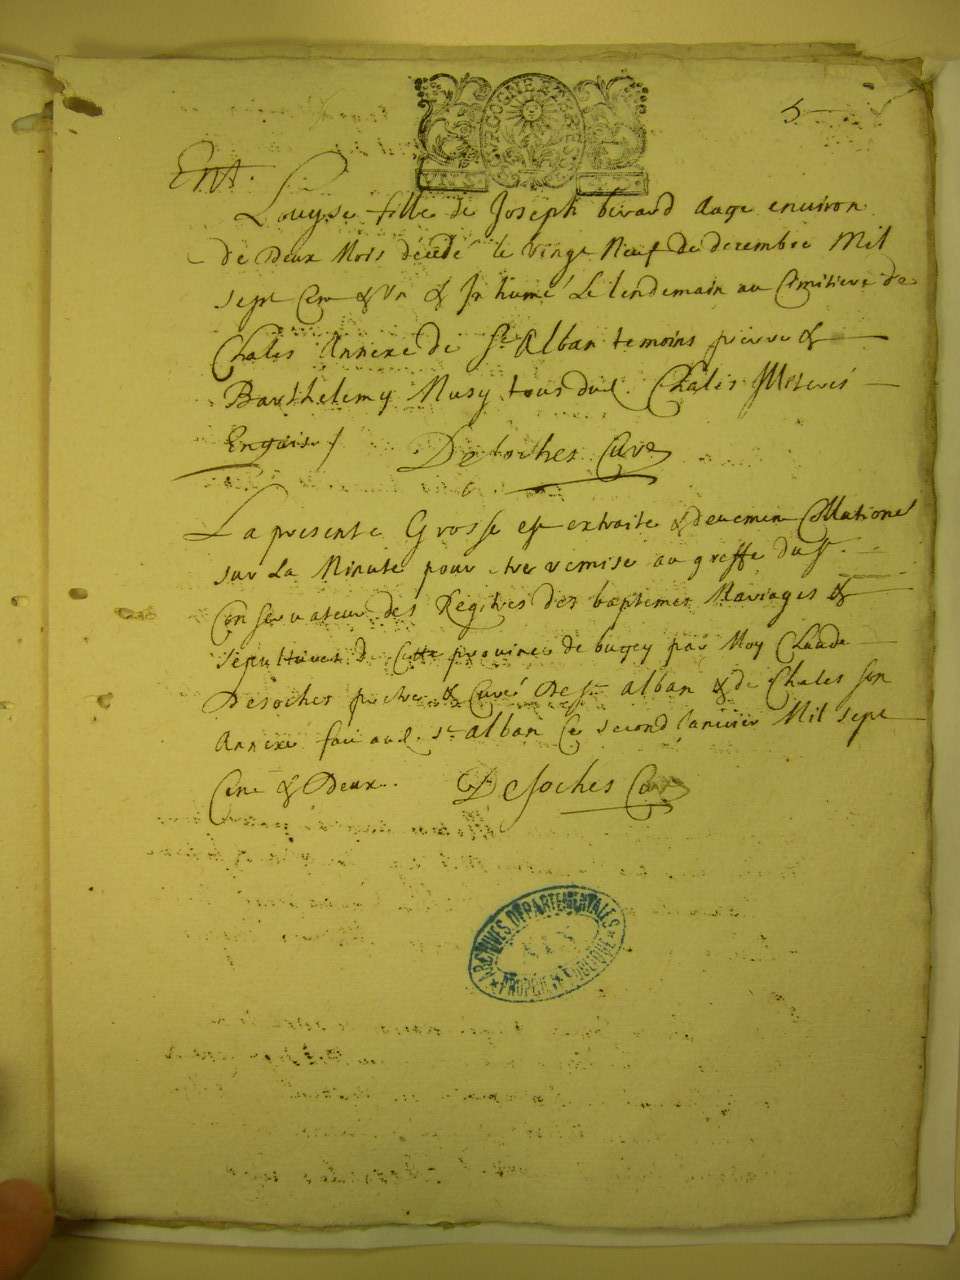 BOURGOGNE ET BRESSE
5
Ent.
Louyse fille de Joseph berard Aage enuiron
de Deux Mois décédé le vingt Neuf de decembre Mil
sept Cent & Un & Inhumé Le lendemain au Cimitiere de
Chales Annexe de St Alban temoins pierre &
Barthelemy Musy tous dud. Chales Illiterés
Enquis /
Desoches Curé
La presente Grosse est extraite & deuement Collationé
sur La Minute pour etre remise au greffe du Sr.
Conservateur des Regitres des baptemes Mariages &
Sepultures de Cette prouince de bugey par Moy Claude
Desoches pretre & Curé De St alban & de Chales son
Annexe fait aud. St alban Ce second Janvier Mil sept
Cent & Deux. Desoches Curé
ARCHIVES DÉPARTEMENTALES
AIN
PROPRIÉTÉ PUBLIQUE